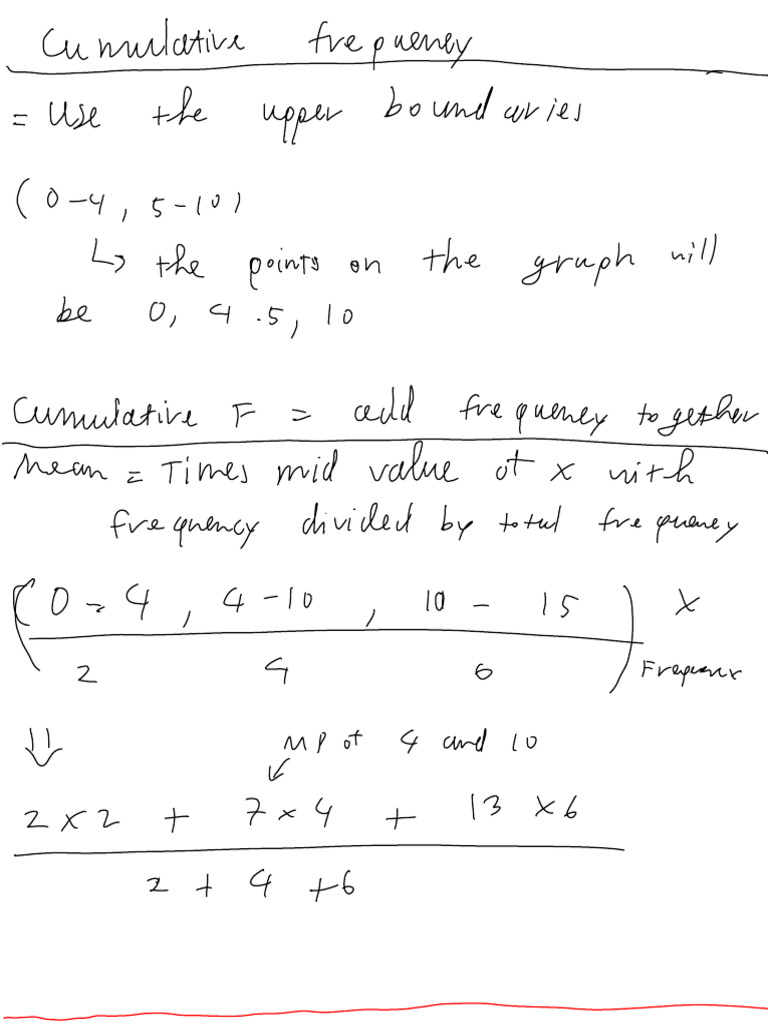 Cumulative frequency
= Use the upper boundaries
(0-4, 5-10)
↳ the points on the graph will
be 0, 4.5, 10
Cumulative F = add frequency together
Mean = Times mid value of x with
frequency divided by total frequency
(0-4, 4-10, 10-15) x
2 4 6 Frequency
⇓ MP of 4 and 10
↙
2×2 + 7×4 + 13×6
2 + 4 + 6